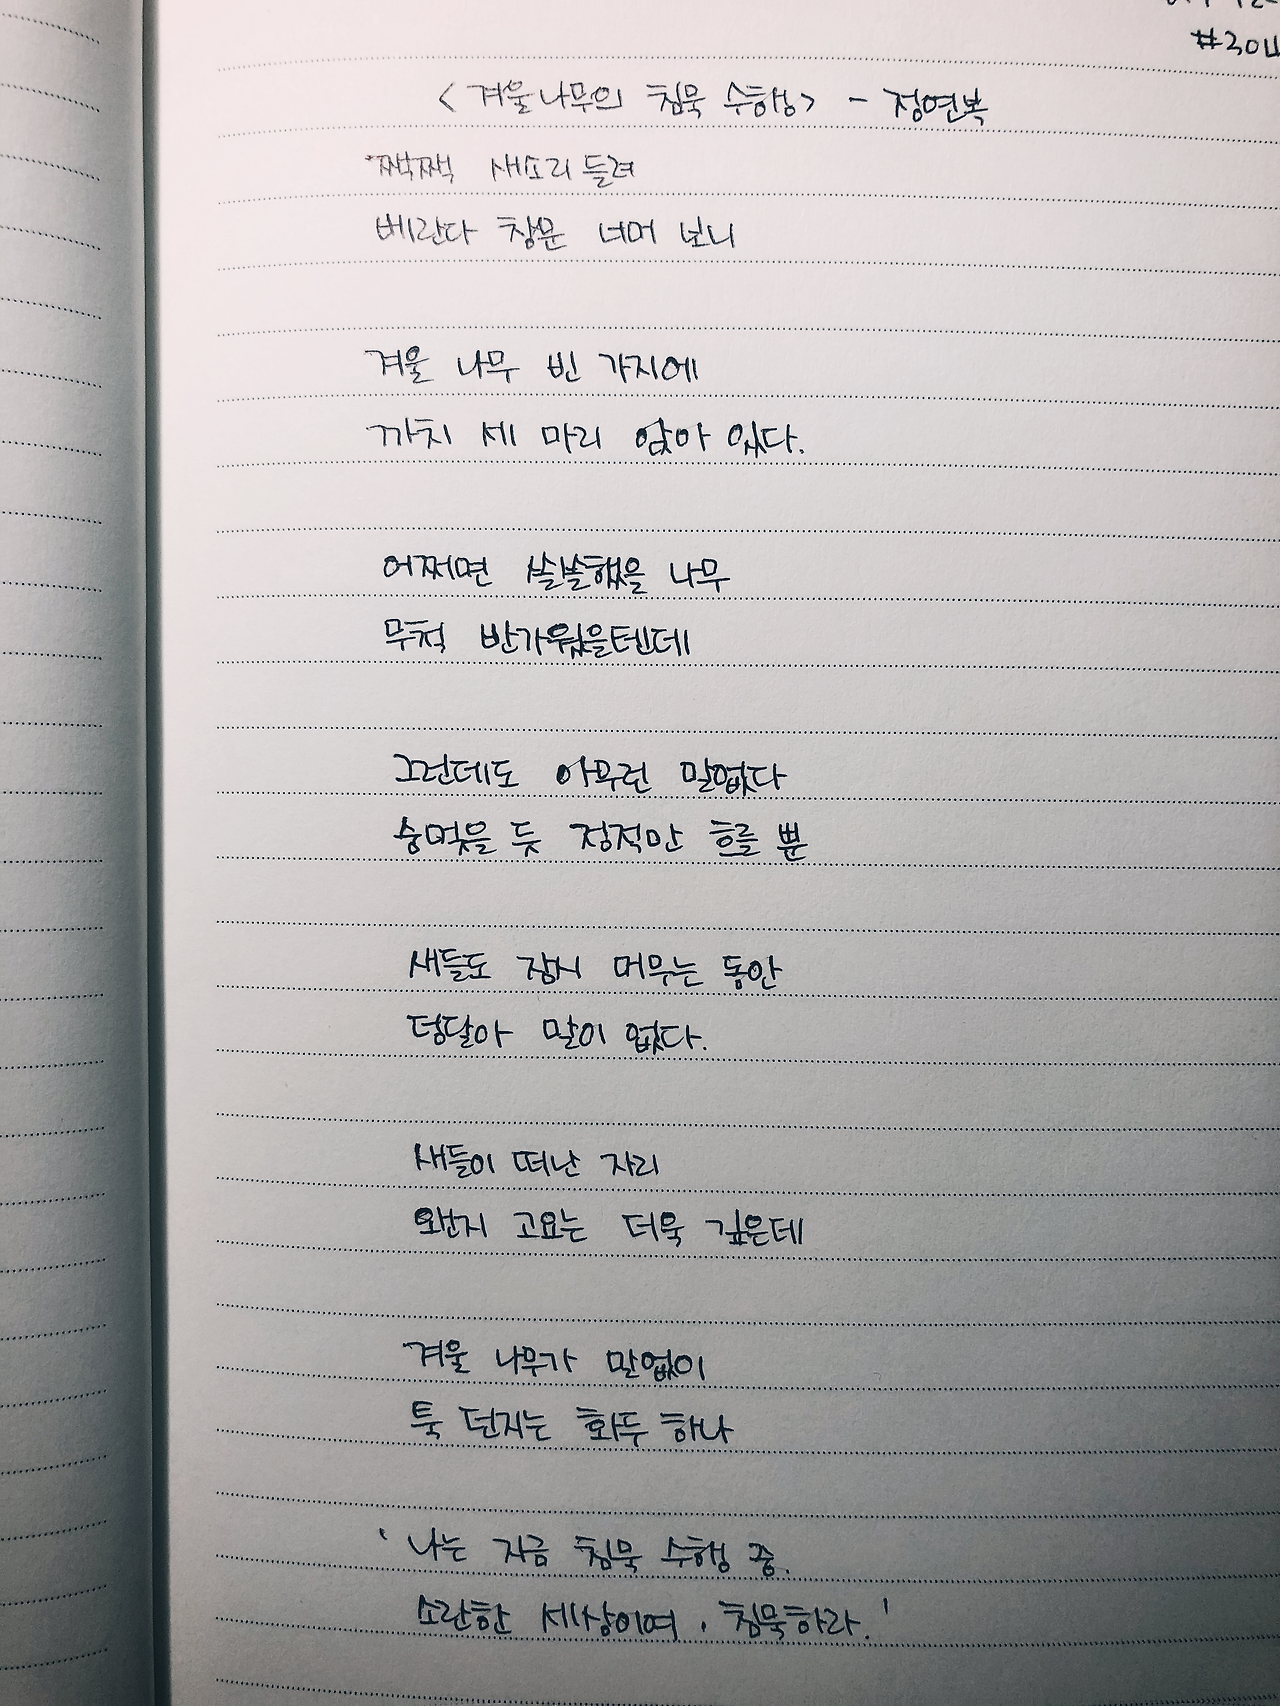 #304
<겨울나무의 침묵 수행> - 정연복
짹짹 새소리 들려
베란다 창문 너머 보니
겨울 나무 빈 가지에
까치 세 마리 앉아 있다.
어쩌면 쓸쓸했을 나무
무척 반가웠을텐데
그런데도 아무런 말없다
숨멎을 듯 정적만 흐를 뿐
새들도 잠시 머무는 동안
덩달아 말이 없다.
새들이 떠난 자리
왠지 고요는 더욱 깊은데
겨울 나무가 말없이
툭 던지는 화두 하나
' 나는 지금 침묵 수행 중.
소란한 세상이여, 침묵하라.'